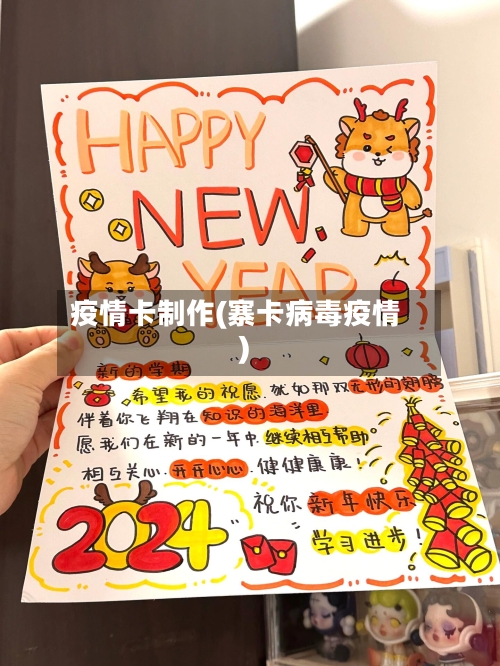 HAPPY
NEW
YEAR
疫情卡制作(寨卡病毒疫情
)
新的学期
希望我的祝愿.就如那双无形的翅膀
伴着你飞翔在知识的海洋里.
愿我们在新的一年中继续相互帮助
相互关心.开开心心.健健康康!
祝你新年快乐
学习进步!
2024